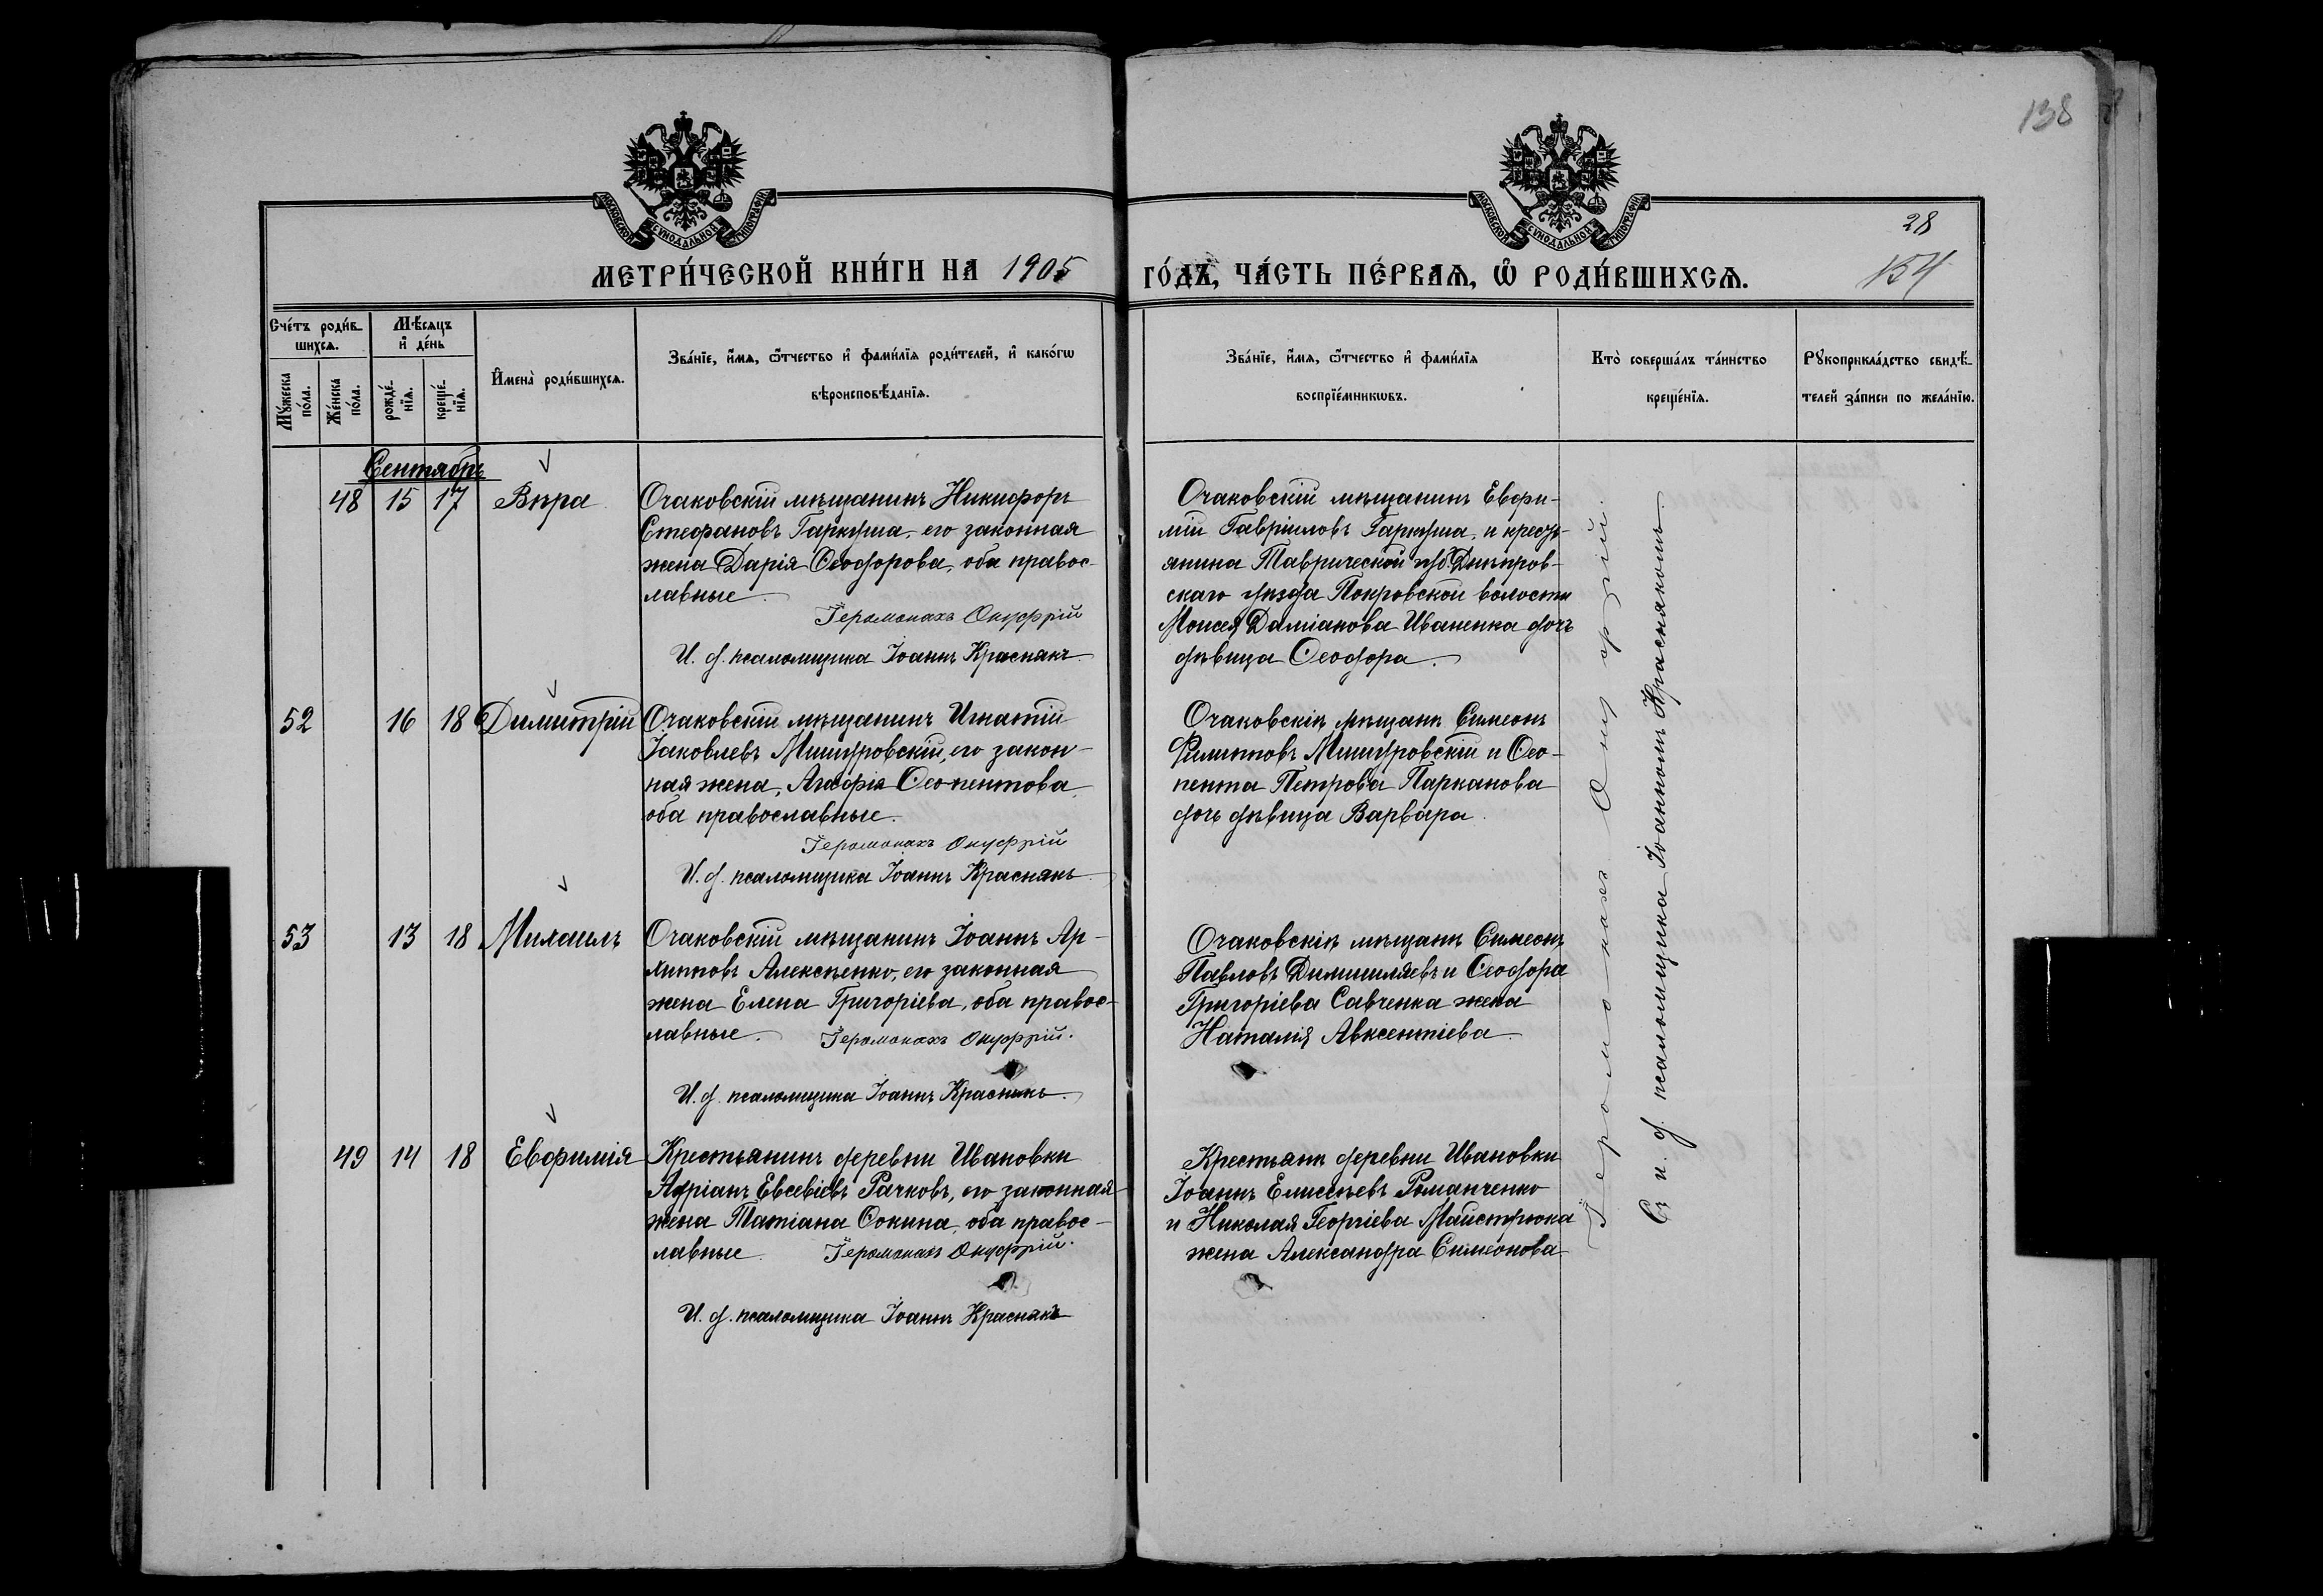 138
МОСКОВСКОЙ СѴНОДАЛЬНОЙ ТИПОГРАФІИ
МОСКОВСКОЙ СѴНОДАЛЬНОЙ ТИПОГРАФІИ
28
154
МЕТРИ́ЧЕСКОЙ КНИ́ГИ НА 1905 ГО́ДЪ, ЧА́СТЬ ПЕ́РВАѦ, Ѡ҆ РОДИ́ВШИХСѦ.
Сче́тъ роди́в-
шихсѧ.
Мꙋ́жеска
по́ла.
Же́нска
по́ла.
Мѣ́сѧцъ
и҆ де́нь
рожде́-
нїѧ.
креще́-
нїѧ.
И҆мена̀ роди́вшихсѧ.
Зва́нїе, и҆́мѧ, ѻ҆́тчество и҆ фами́лїѧ роди́телей, и҆ како́гѡ
вѣроисповѣ́данїѧ.
Зва́нїе, и҆́мѧ, ѻ҆́тчество и҆ фами́лїѧ
воспрїе́мникѡвъ.
Кто̀ соверша́лъ та́инство
креще́нїѧ.
Рꙋкоприкла́дство свидѣ́-
телей за́писи по жела́нїю.
Сентябрь
48 15 17 Вѣра
Очаковскій мѣщанинъ Никифоръ
Стефановъ Гаркуша, его законная
жена Дарія Ѳеодорова, оба правос-
лавные
Іеромонахъ Онуфрій
И. д. псаломщика Іоаннъ Краснякъ
Очаковскій мѣщанинъ Евфи-
мій Гавріиловъ Гаркуша, и кресть-
янина Таврической губ. Днѣпров-
скаго уѣзда Покровской волости
Моисея Даміанова Иваненка дочь
дѣвица Ѳеодора.
52 16 18 Димитрій
Очаковскій мѣщанинъ Игнатій
Іаковлевъ Мишуровскій, его закон-
ная жена, Агафія Ѳеопентова
оба православные.
Іеромонахъ Онуфрій
И. д. псаломщика Іоаннъ Краснякъ
Очаковскіе мѣщане Симеонъ
Филипповъ Мишуровскій и Ѳео-
пента Петрова Парканова
дочь дѣвица Варвара.
53 13 18 Михаилъ
Очаковскій мѣщанинъ Іоаннъ Ар-
хипповъ Алексѣенко, его законная
жена Елена Григоріева, оба правос-
лавные.
Іеромонахъ Онуфрій.
И. д. псаломщика Іоаннъ Краснякъ.
Очаковскіе мѣщане Симеонъ
Павловъ и Ѳеодора
Григоріева Савченка жена
Наталія Авксентіева
49 14 18 Евфимія
Крестьянинъ деревни Ивановки
Адріанъ Евсевіевъ Рачковъ, его законная
жена Татіана Ѳокина, оба правос-
лавные
Іеромонахъ Онуфрій.
И. д. псаломщика Іоаннъ Краснякъ
Крестьяне деревни Ивановки
Іоаннъ Елисѣевъ Романченко
и Николая Георгіева Майстрюка
жена Александра Симеонова
Іеромонахъ Онуфрій.
Съ и. д. псаломщика Іоанномъ Краснякомъ